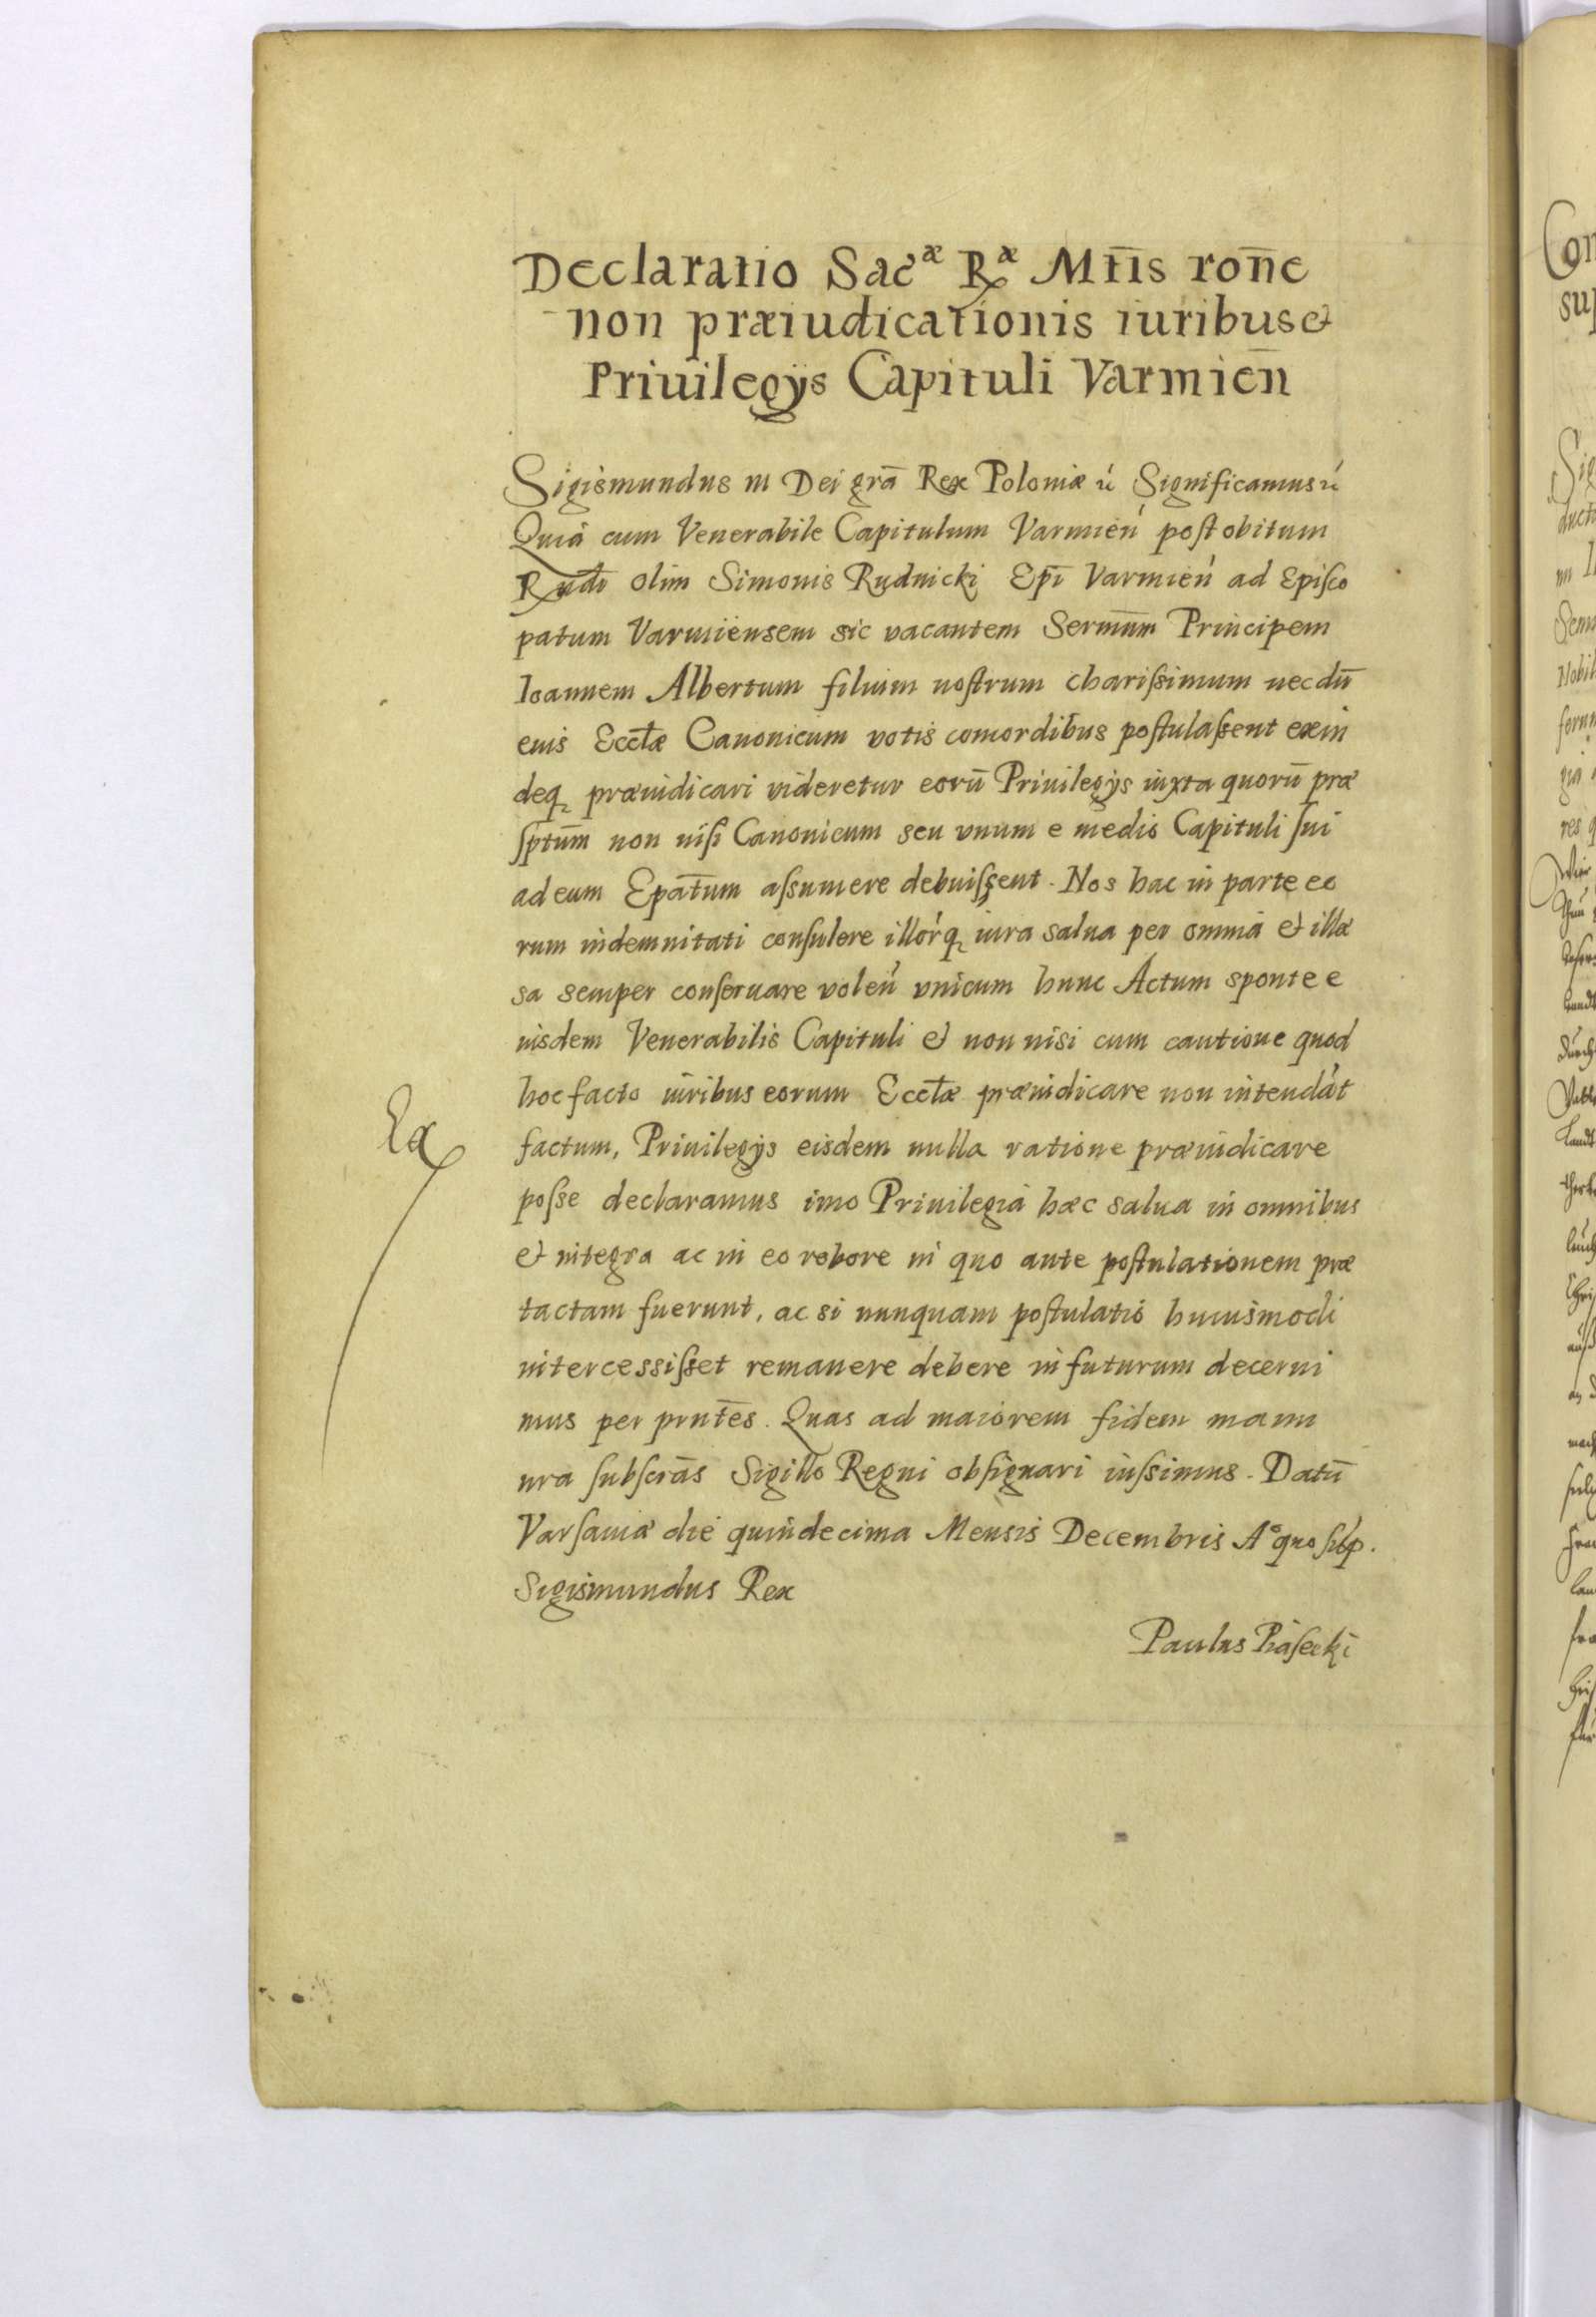 Declaratio Sacᵃᵉ Rᵃᵉ Mtīs rone̅
non præiudicationis iuribus et
Priuilegijs Capituli Varmien̅
Sigismundus III Dei gra̅ Rex Poloniæ ꝛc̓ Significamus ꝛc̓
Quia cum Venerabile Capitulum Varmien̓ post obitum
Rndi olim Simonis Rudnicki Epī Varmien̓ ad Episco
patum Varmiensem sic vacantem Sermu̅m Principem
Ioannem Albertum filium nostrum charissimum necdu̅
eius Eccl̅æ Canonicum votis concordibus postulassent exin
deq præiudicari videretur eoru̅ Priuilegijs iuxta quoru̅ præ
sptu̅m non nisi Canonicum seu vnum e medio Capituli sui
ad eum Epatu̅m assumere debuissent. Nos hac in parte eo
rum indemnitati consulere illor̓q iura salua per omnia et illæ
sa semper conseruare volen̓ vnicum hunc Actum sponte e
iusdem Venerabilis Capituli et non nisi cum cautione quod
hoc facto iuribus eorum Eccl̅æ præiudicare non intendat
factum, Priuilegijs eisdem nulla ratione præiudicare
Ex
posse declaramus imo Priuilegia hæc salua in omnibus
et integra ac in eo robore in quo ante postulationem præ
tactam fuerunt, ac si nunquam postulatio huiusmodi
intercessisset remanere debere in futurum decerni
mus per pnte̅s. Quas ad maiorem fidem manu
nra subscra̅s Sigillo Regni obsignari iussimus. Datu̅
Varsauiæ die quindecima Mensis Decembris A° quo sup.
Sigismundus Rex
Paulus Piasecki